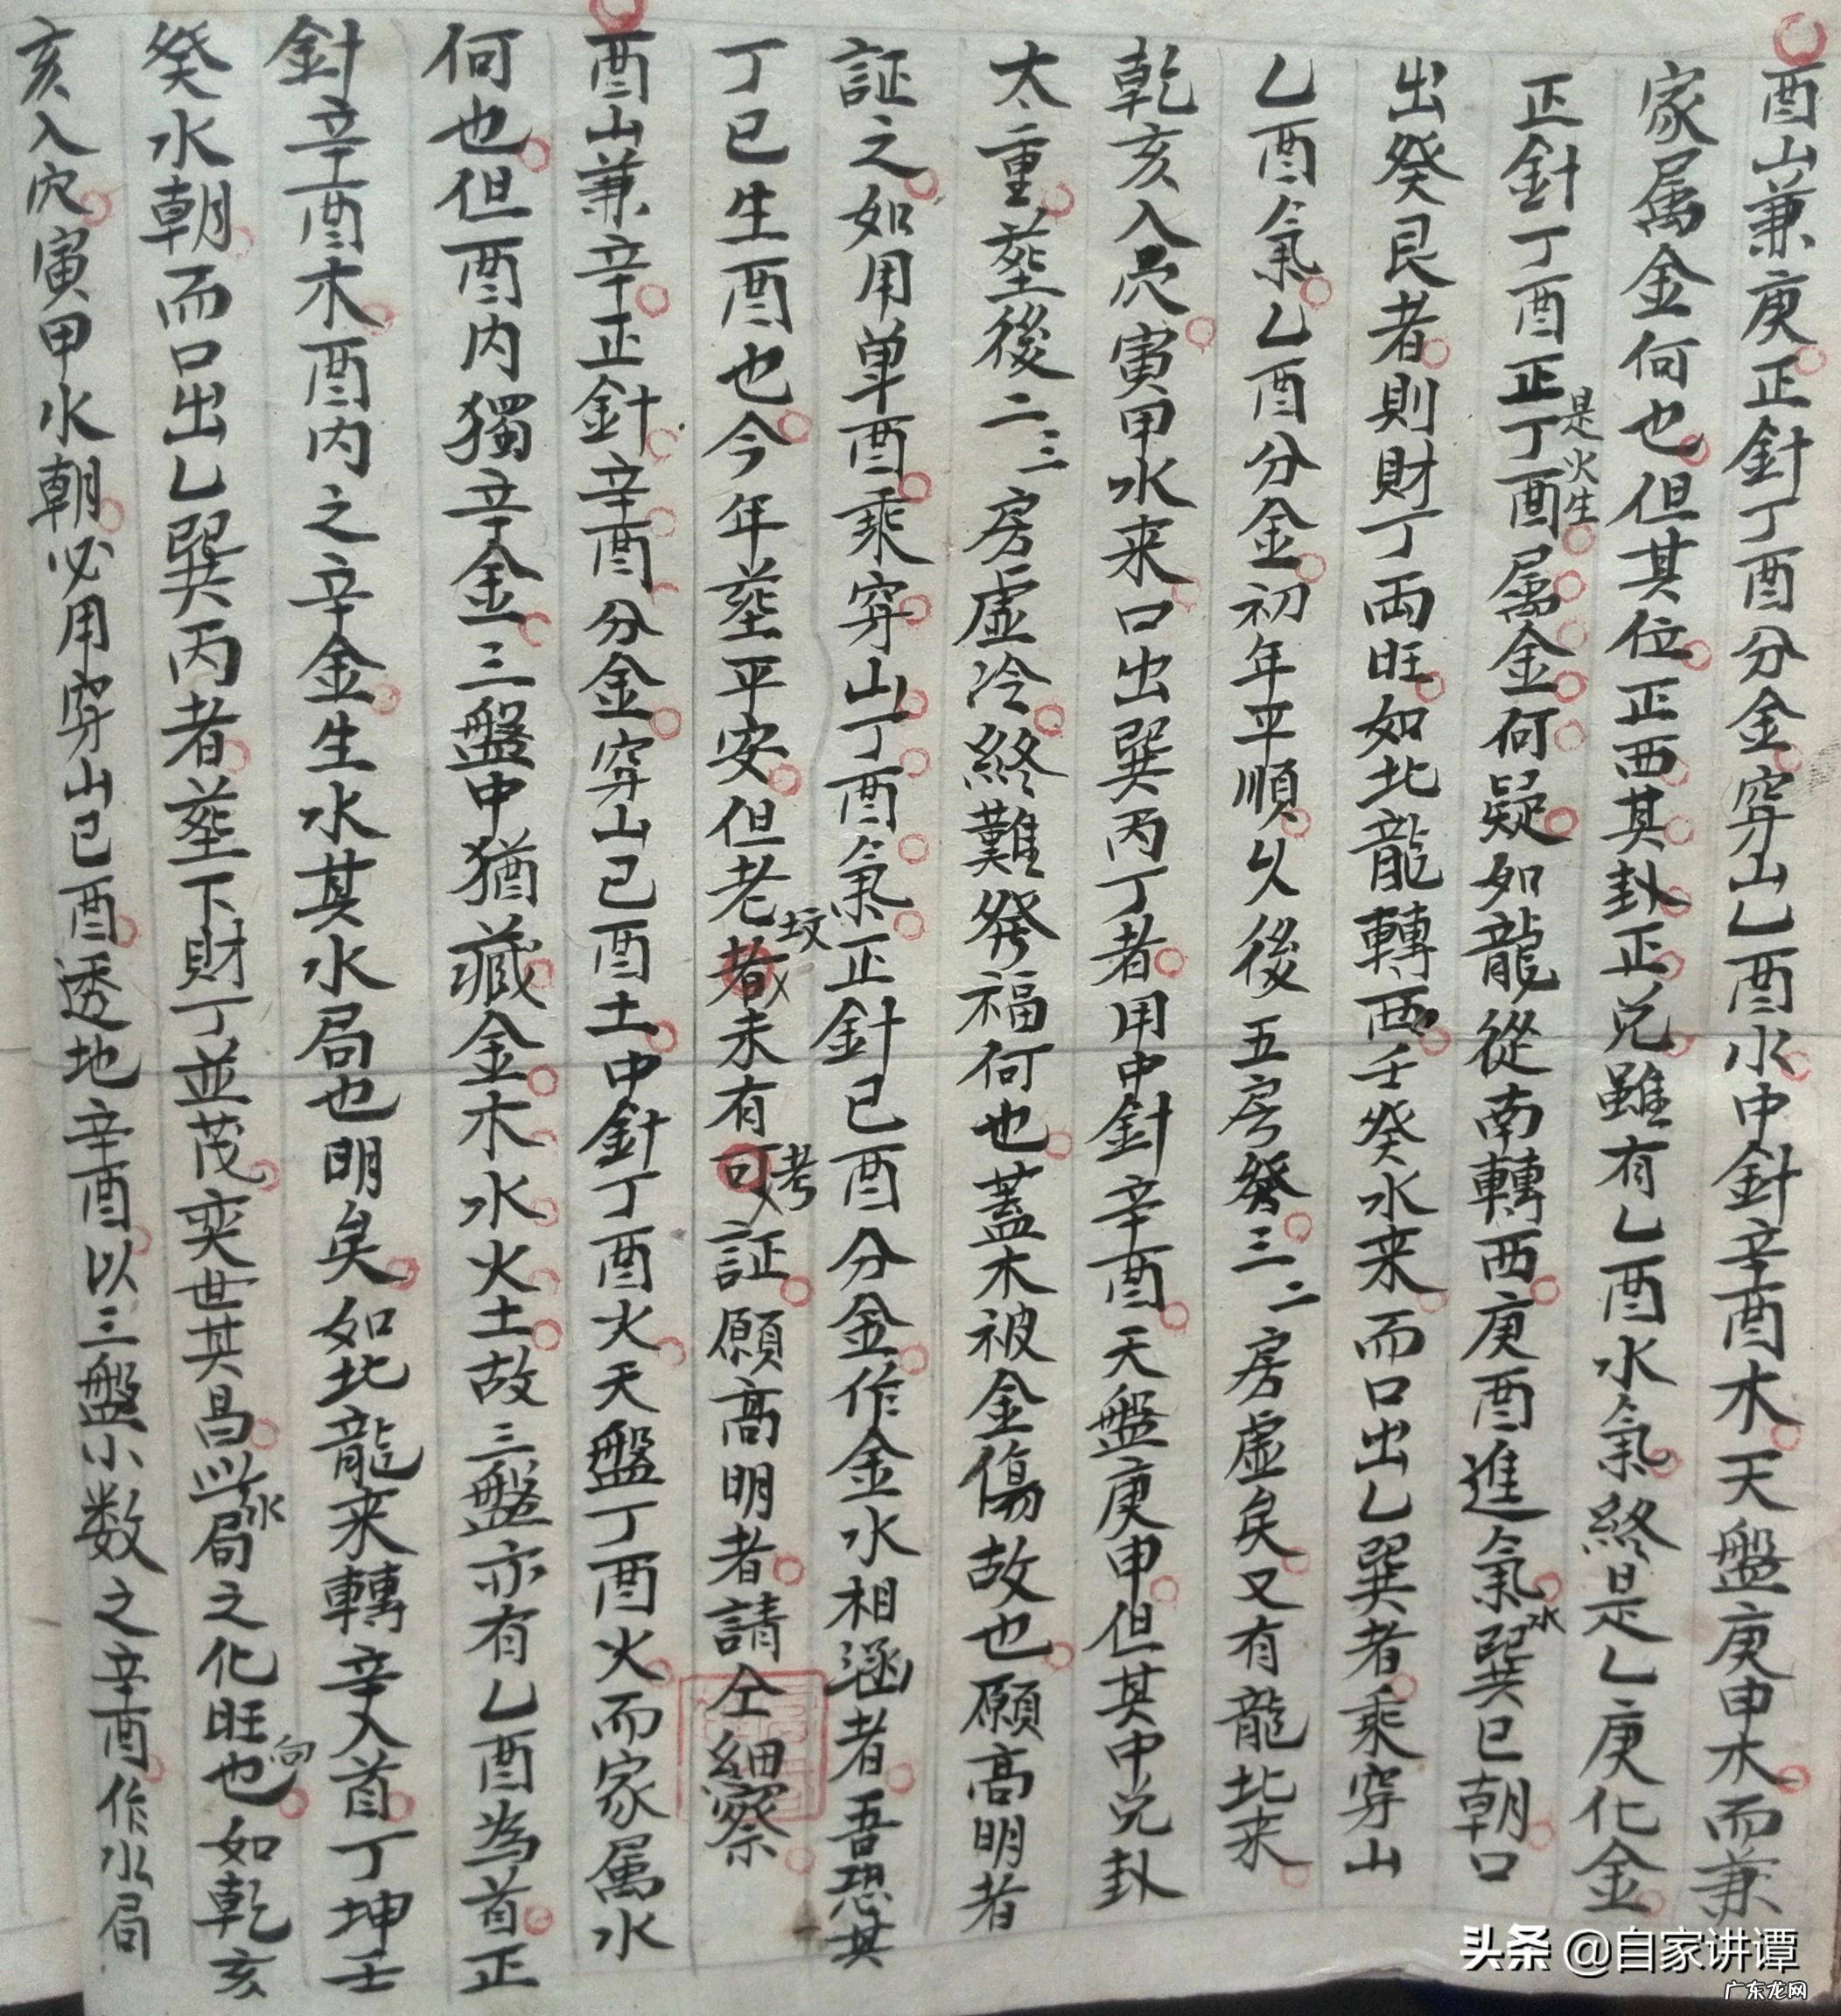 酉山兼庚正針丁酉分金穿山乙酉水中針辛酉木天盤庚申木而兼
家属金何也但其位正西其卦正兑雖有乙酉水氣終是乙庚化金
正針丁酉正丁酉属金何疑如龍從南轉西庚酉進氣巽巳朝口
是火生
水
出癸艮者則財丁両旺如北龍轉西壬癸水来而口出乙巽者乘穿山
乙酉氣乙酉分金初年平順久後五房發三二房虚矣又有龍北来
乾亥入穴寅甲水来口出巽丙丁者用中針辛酉天盤庚申但其中兑卦
太重塟後二三房虚冷終難發福何也蓋木被金傷故也願高明者
証之如用单酉乘穿山丁酉氣正針己酉分金作金水相涵者吾恐其
丁巳生酉也今年塟平安但老者未有可証願高明者請仝細察
坟
考
酉山兼辛正針辛酉分金穿山己酉土中針丁酉火天盤丁酉火而家属水
何也但酉内獨辛金三盤中猶藏金木水火土故三盤亦有乙酉為首正
針辛酉木酉内之辛金生水其水局也明矣如北龍来轉辛入首丁坤壬
癸水朝而口出乙巽丙者塟下財丁並茂奕世其昌此局之化旺也如乾亥
水
向
亥入穴寅甲水朝必用穿山己酉透地辛酉以三盤小数之辛酉作水局
头条 @自家讲谭
广东龙网